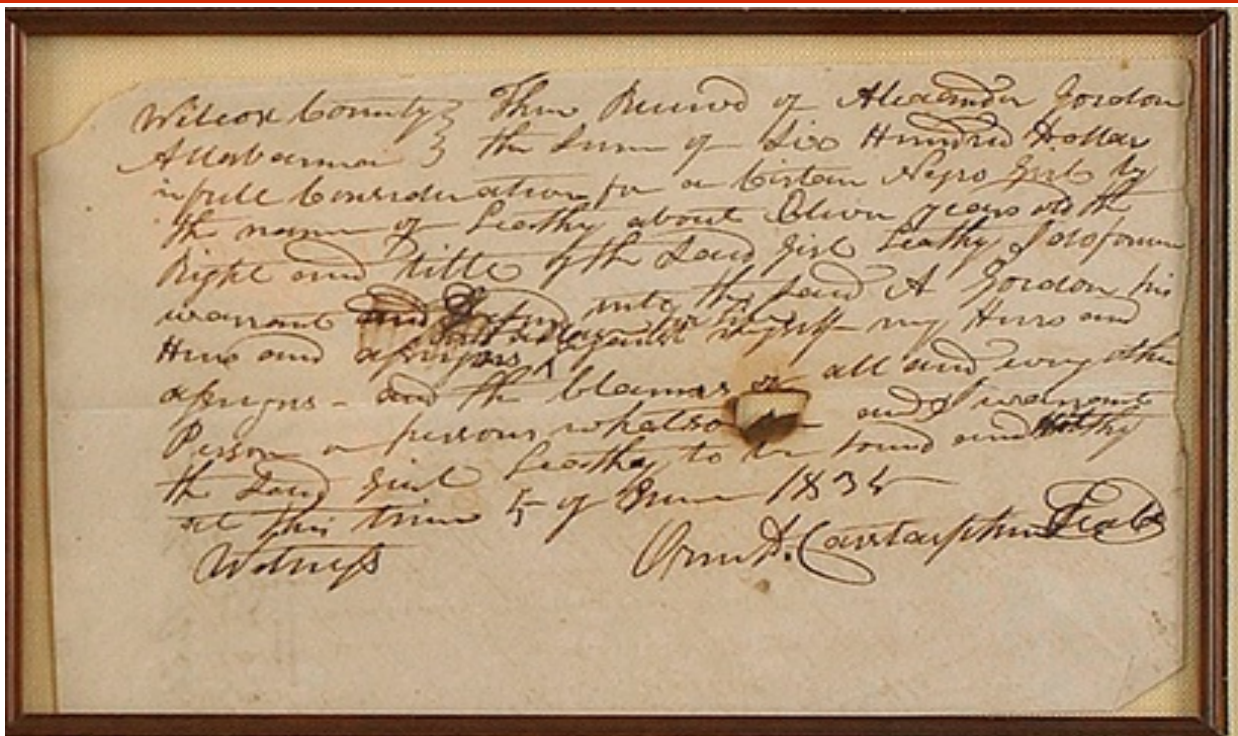 Wilcox County } Then Received of Alexander Gordon
Allabamma } the Sum of Six Hundred Dollar
in full Consideration for a Certain Negro Girl by
the name of Leathy about Eleven years old the
Right and Title of the Said Girl Leathy I do forever
warrant unto the Said A Gordon his
Heirs and assigns against myself my Heirs and
assigns - and the Clames of all and every other
Person or persons whatso and I warrant
the Said Girl Leathy to be Sound and Helthy
at this time 5 of June 1835
Witness Carstarphen Seal